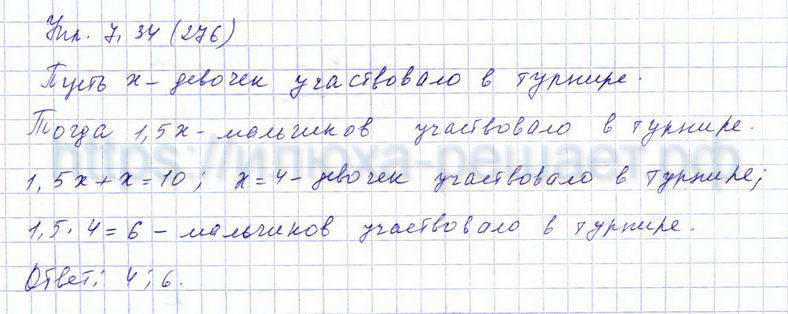 Упр. 7.34 (276)
Пусть x – девочек участвовало в турнире.
Тогда 1,5x – мальчиков участвовало в турнире.
https://илюха-решает.рф
1,5x + x = 10; x = 4 – девочек участвовало в турнире;
1,5 · 4 = 6 – мальчиков участвовало в турнире.
Ответ: 4; 6.